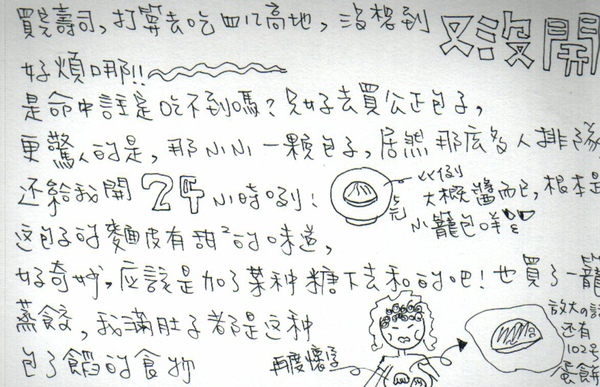 買完壽司,打算去吃四八高地,沒想到
又沒開
好煩哪!!
是命中註定吃不到嗎?只好去買公正包子,
更驚人的是,那小小一顆包子,居然那広多人排隊
还給我開24小時咧!
5元
比例
大概醬而已,根本是
小籠包咩
这包子的麵皮有甜²的味道,
好奇妙,应該是加了某种糖下去和的吧!也買了一籠
蒸餃,我滿肚子都是这种
包了餡的食物
再度懷孕
放大の話
还有
102号
蛋餅